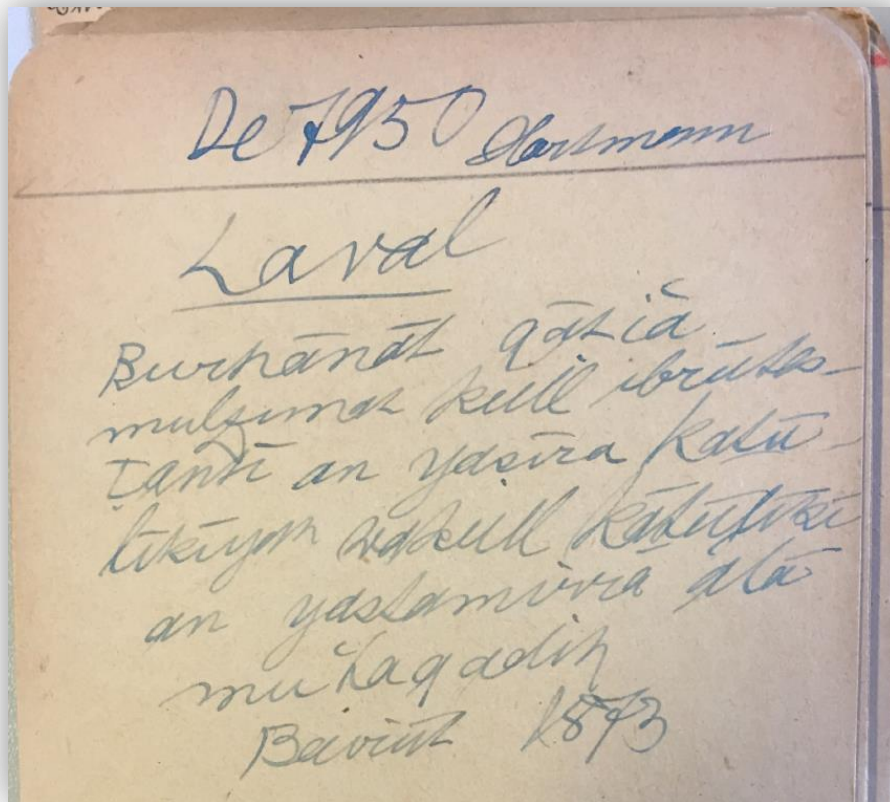 De 7950 Hartmann
Laval
Burhānāt qāṭiʿa
mulzimat kull ibrūtes-
tānti an yaṣīra katū-
līkīyan wakull kātūlīkī
an yastamirra ʿalā
muʿtaqadih
Beirut 1873